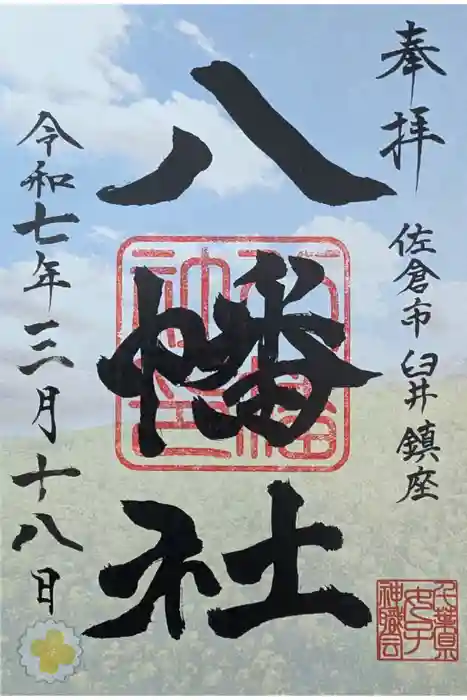 奉拝
佐倉市臼井鎮座
八幡社
令和七年三月十八日
千葉県
女子
神職会